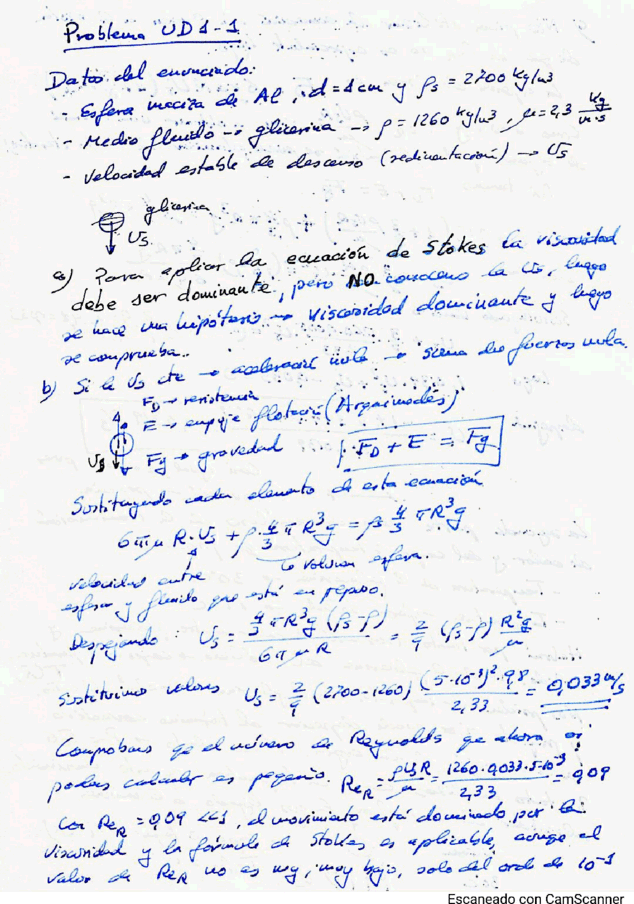 Problema UD1-1
Datos del enunciado:
- Esfera maciza de Al, d=1cm y ρs = 2700 kg/m³
- Medio fluido → glicerina → ρ = 1260 kg/m³, μ=2,3 kg/m·s
- Velocidad estable de descenso (sedimentación) → Us
glicerina
Us
a) Para aplicar la ecuación de Stokes la viscosidad
debe ser dominante, pero NO conocemos la Us, luego
se hace una hipótesis → viscosidad dominante y luego
se comprueba..
b) Si la Us cte → aceleración nula → suma de fuerzas nula.
FD → resistencia
E → empuje flotación (Arquímedes)
Us Fg → gravedad FD + E = Fg
Sustituyendo cada elemento de esta ecuación
6πμ R·Us + ρ·4/3 π R³g = ρs 4/3 πR³g
velocidad entre → volumen esfera.
esfera y fluido que está en reposo.
Despejando: Us = 4/3 πR³g (ρs-ρ) / 6πμR = 2/9 (ρs-ρ) R²g/μ
Sustituimos valores Us = 2/9 (2700-1260) (5·10⁻³)²·9,8 / 2,33 = 0,033 m/s
Comprobamos que el número de Reynolds que ahora sí
podemos calcular es pequeño. ReR = ρUsR/μ = 1260·0,033·5·10⁻³ / 2,33 = 0,09
Con ReR = 0,09 <<1, el movimiento está dominado por la
viscosidad y la fórmula de Stokes es aplicable, aunque el
valor de ReR no es muy, muy bajo, solo del orden de 10⁻¹
Escaneado con CamScanner